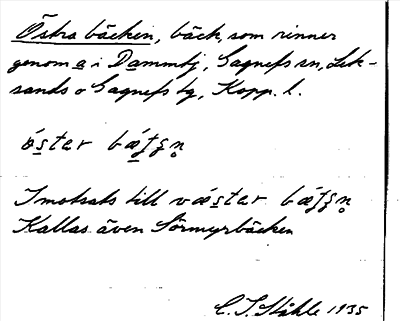 Östra bäcken, bäck, som rinner
genom a i Dammtj, Gagnefs sn, Lek-
sands o Gagnefs tg, Kopp. l.
öster
Imotsats till väster
Kallas även Sörmyrbäcken
C. I. Ståhle 1935